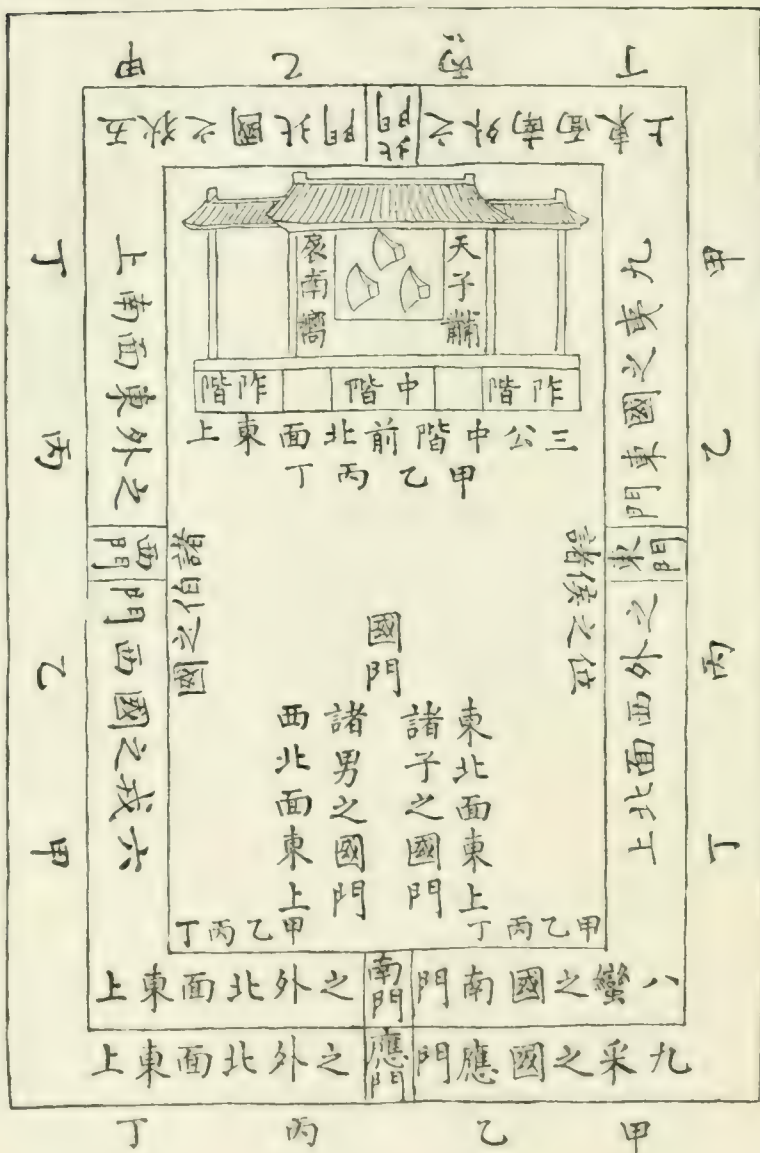 甲乙丙丁
五狄之國北門
北門
之外南面東上
天子黼
扆南嚮
阼階
中階
阼階
三公中階前北面東上
甲乙丙丁
甲乙丙丁
九夷之國東門
東門
之外西面北上
諸侯之位
諸伯之國
甲乙丙丁
六戎之國西門
西門
之外東面南上
國門
諸子之國門
東北面東上
甲乙丙丁
諸男之國門
西北面東上
甲乙丙丁
八蠻之國南門
南門
之外北面東上
九采之國應門
應門
之外北面東上
甲乙丙丁